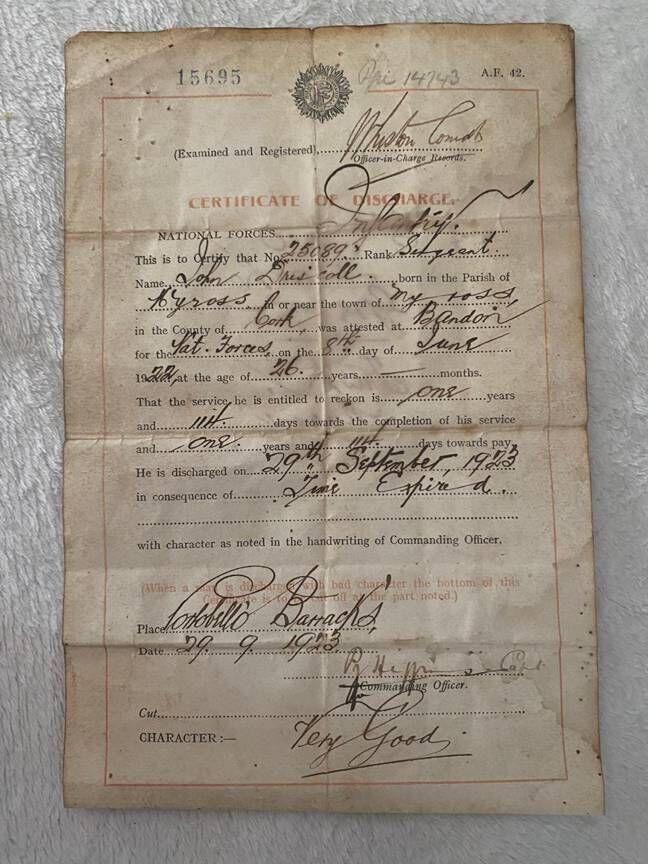 15695 14743 A.F. 42.
(Examined and Registered)
Officer-in-Charge Records.
CERTIFICATE OF DISCHARGE.
NATIONAL FORCES Infantry.
This is to Certify that No. 25089. Rank Sergeant.
Name John Driscoll. born in the Parish of
Myross in or near the town of Myross,
in the County of Cork, was attested at Bandon
for the Nat. Forces, on the 8th day of June
1922, at the age of 26 years — months.
That the service he is entitled to reckon is one years
and 114 days towards the completion of his service
and one. years and 114 days towards pay.
He is discharged on 29th September, 1923
in consequence of Time Expired.
with character as noted in the handwriting of Commanding Officer.
(When a man is discharged with bad character the bottom of this
Certificate is to be cut off at the part noted.)
Place Portobello Barracks,
Date 29. 9. 1923
Capt
Commanding Officer.
Cut
CHARACTER:— Very Good.